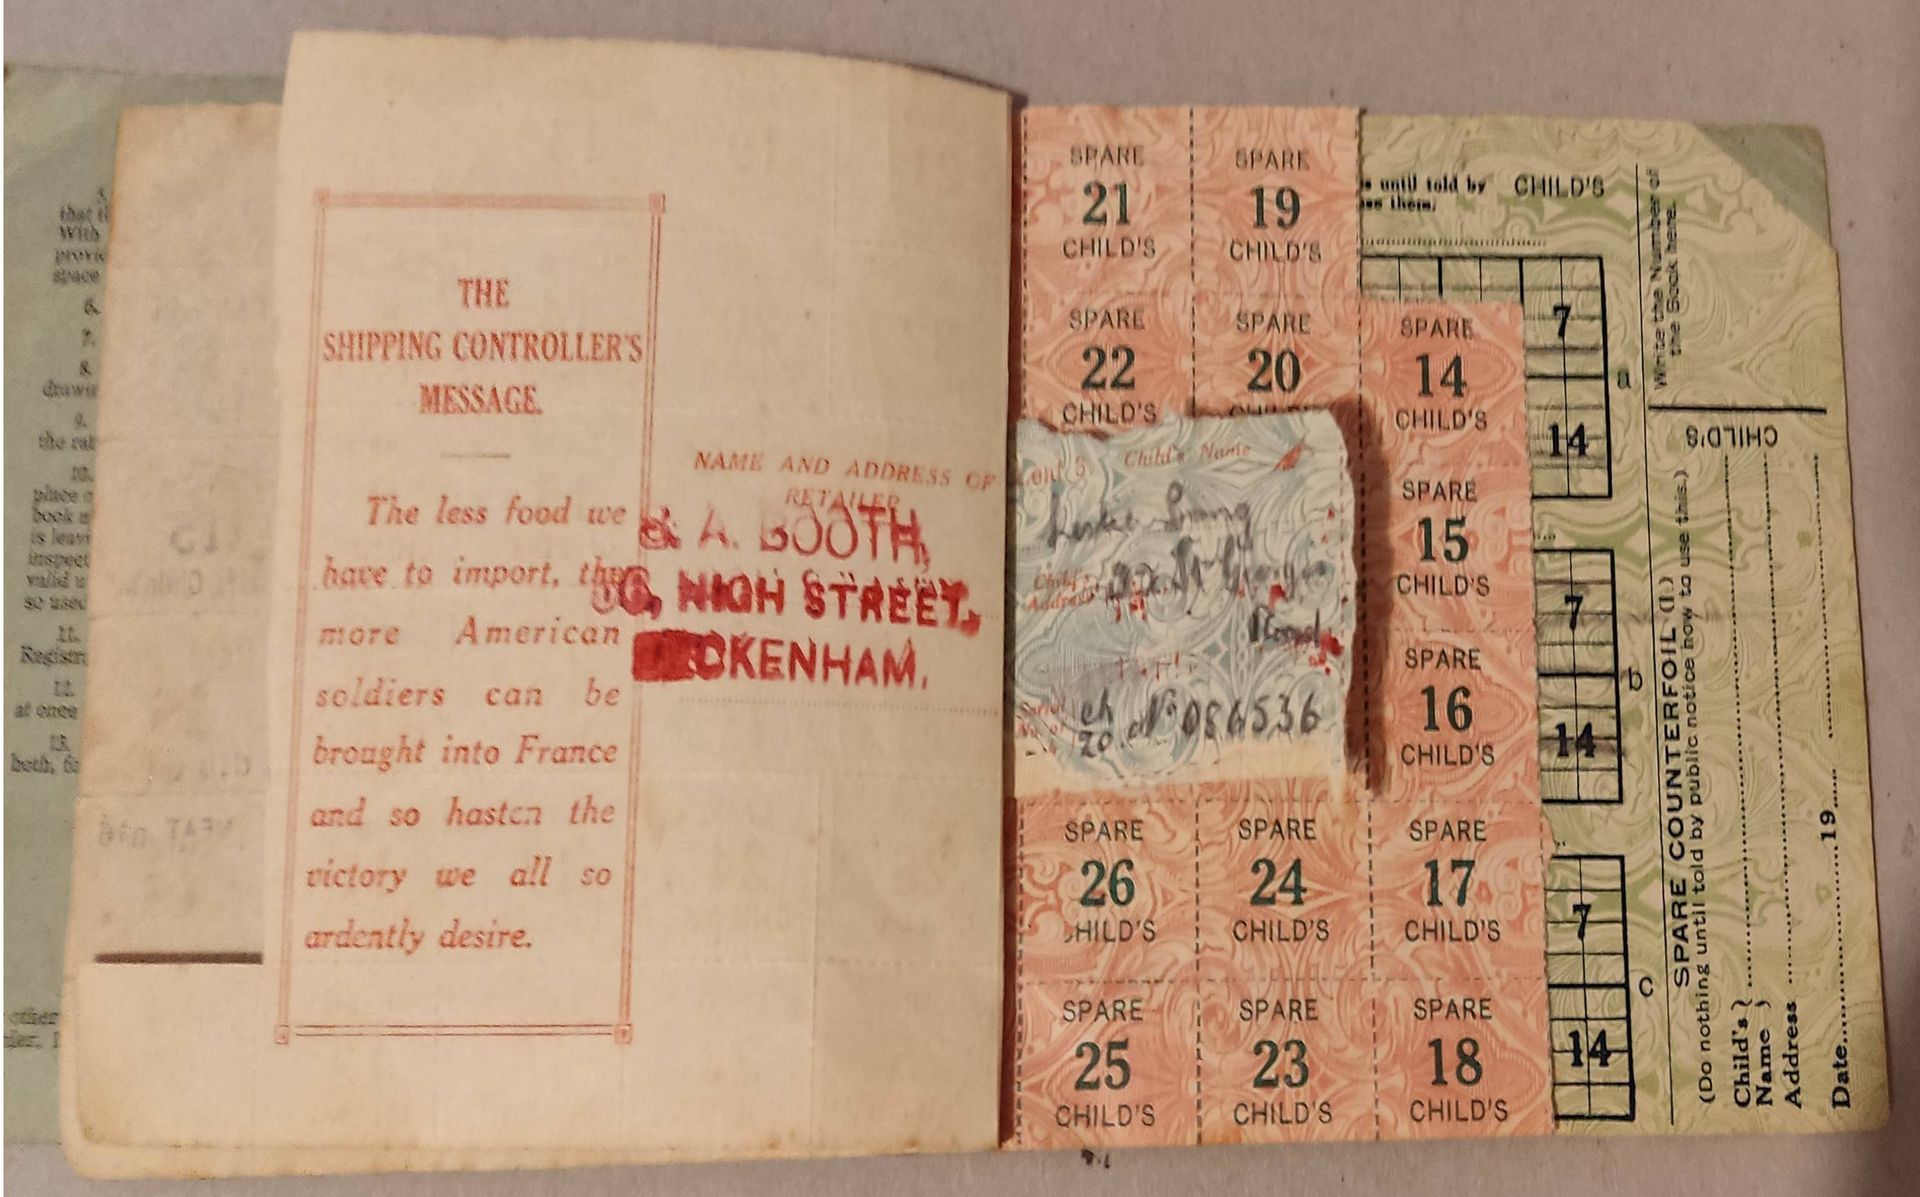 5.
that
With
space
6.
7.
8.
9.
the rat
10.
place
book
is
valid u
so used
11.
12.
at once
13.
both,
THE
SHIPPING CONTROLLER'S
MESSAGE.
The less food we
have to import, the
more American
soldiers can be
brought into France
and so hasten the
victory we all so
ardently desire.
NAME AND ADDRESS OF
RETAILER
A. BOOTH,
HIGH STREET,
CKENHAM.
SPARE
21
CHILD'S
SPARE
19
CHILD'S
SPARE
22
CHILD'S
SPARE
20
CHILD'S
Child's Name
Leslie
Child's
Address
Road
Serial
No. of
Ch
20 No 086536
SPARE
14
CHILD'S
SPARE
15
CHILD'S
SPARE
16
CHILD'S
SPARE
26
CHILD'S
SPARE
24
CHILD'S
SPARE
17
CHILD'S
SPARE
25
CHILD'S
SPARE
23
CHILD'S
SPARE
18
CHILD'S
until told by CHILD'S
them.
7
14
a
7
14
b
7
14
c
Write the Number of
the Book here.
CHILD'S
SPARE COUNTERFOIL (1.)
(Do nothing until told by public notice how to use this.)
Child's
Name
Address
Date 19